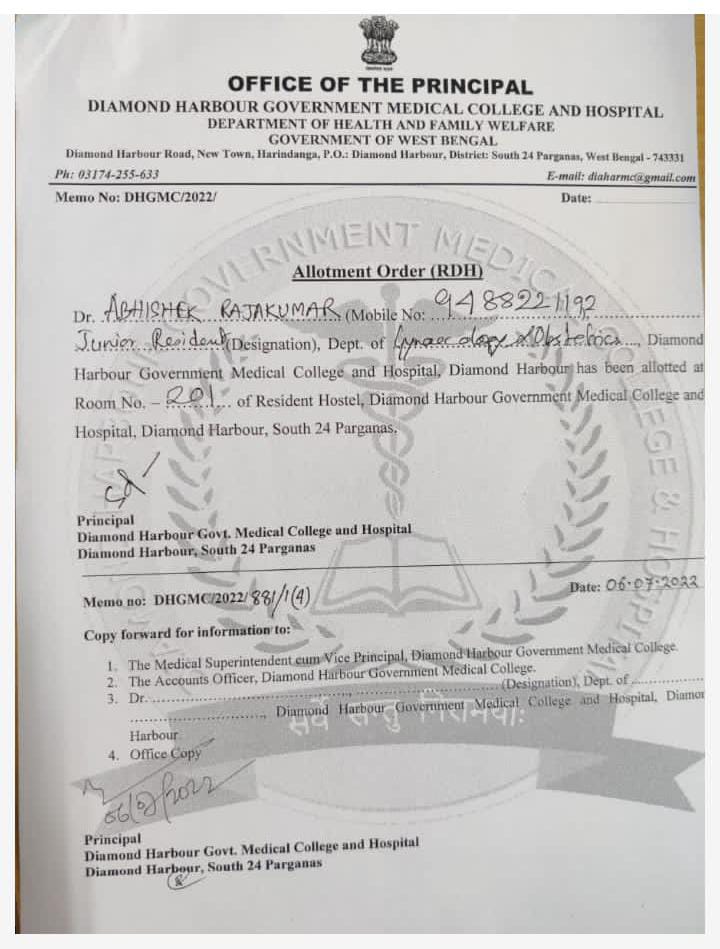 OFFICE OF THE PRINCIPAL
DIAMOND HARBOUR GOVERNMENT MEDICAL COLLEGE AND HOSPITAL
DEPARTMENT OF HEALTH AND FAMILY WELFARE
GOVERNMENT OF WEST BENGAL
Diamond Harbour Road, New Town, Harindanga, P.O.: Diamond Harbour, District: South 24 Parganas, West Bengal - 743331
Ph: 03174-255-633 E-mail: diaharmc@gmail.com
Memo No: DHGMC/2022/ Date:
Allotment Order (RDH)
Dr. ABHISHEK RAJAKUMAR (Mobile No: 9488221192
Junior Resident (Designation), Dept. of Gynaecology & Obstetrics..., Diamond
Harbour Government Medical College and Hospital, Diamond Harbour has been allotted at
Room No. – 201 of Resident Hostel, Diamond Harbour Government Medical College and
Hospital, Diamond Harbour, South 24 Parganas.
Principal
Diamond Harbour Govt. Medical College and Hospital
Diamond Harbour, South 24 Parganas
Memo no: DHGMC/2022/881/1(4) Date: 06-07-2022
Copy forward for information to:
1. The Medical Superintendent cum Vice Principal, Diamond Harbour Government Medical College.
2. The Accounts Officer, Diamond Harbour Government Medical College.
3. Dr. ...................., .................... (Designation), Dept. of ..............
...................., Diamond Harbour Government Medical College and Hospital, Diamon
Harbour
4. Office Copy
सर्वे सन्तु निरामयाः
Principal
Diamond Harbour Govt. Medical College and Hospital
Diamond Harbour, South 24 Parganas